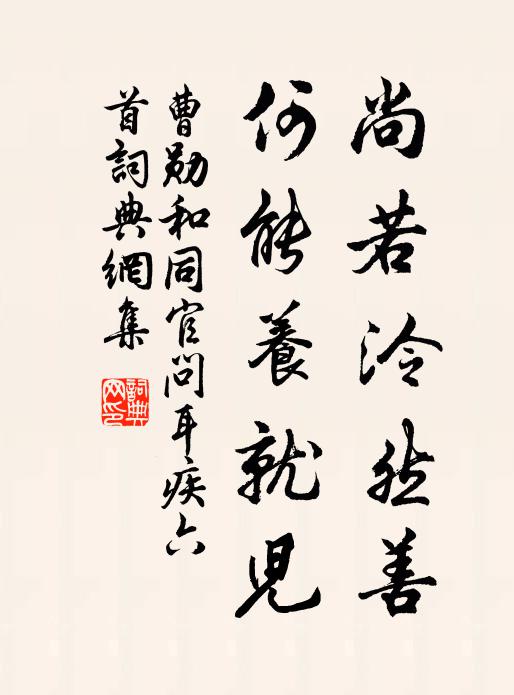 尚若泠然善
何能養就兒
曹勛和同官問耳疾六
首詞典網集
詞典網印